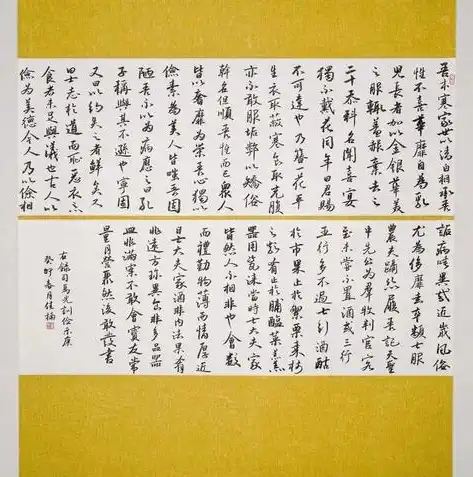 吾本寒家世以清白相承吾
性不喜華靡自為乳
兒長者加以金銀華美
之服輒羞赧棄去之
二十忝科名聞喜宴
獨不戴花同年曰君賜
不可違也乃簪一花平
生衣取蔽寒食取充腹
亦不敢服垢弊以矯俗
幹名但順吾性而已衆人
皆以奢靡為榮吾心獨以
儉素為美人皆嗤吾固
陋吾不以為病應之曰孔
子稱與其不遜也寧固
又曰以約失之者鮮矣又
曰士志於道而恥惡衣惡
食者未足與議也古人以
儉為美德今人乃以儉相
詬病嘻異哉近歲風俗
尤為侈靡走卒類士服
農夫躡絲履吾記天聖
中先公為群牧判官客
至未嘗不置酒或三行
五行多不過七行酒酤
於市果止於梨栗棗柿
之類肴止於脯醢菜羹
器用瓷漆當時士大夫家
皆然人不相非也會數
而禮勤物薄而情厚近
日士大夫家酒非內法果肴
非遠方珍異食非多品器
皿非滿案不敢會賓友常
量月營聚然後敢發書
右錄司馬光訓儉示康
癸卯春月佳楠